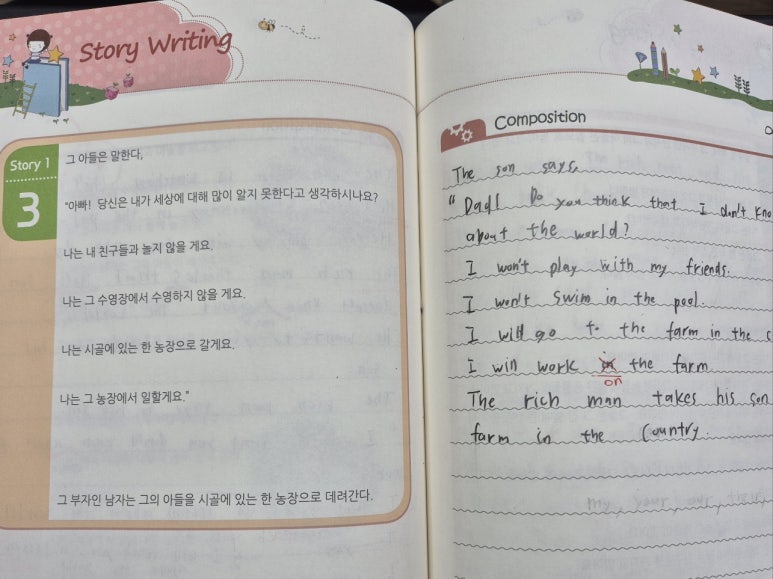 Story Writing
Story 1
3
그 아들은 말한다,
"아빠! 당신은 내가 세상에 대해 많이 알지 못한다고 생각하시나요?
나는 내 친구들과 놀지 않을 게요.
나는 그 수영장에서 수영하지 않을 게요.
나는 시골에 있는 한 농장으로 갈게요.
나는 그 농장에서 일할게요."
그 부자인 남자는 그의 아들을 시골에 있는 한 농장으로 데려간다.
Composition
The son says,
"Dad! Do you think that I don't kno
about the world?
I won't play with my friends.
I won't swim in the pool.
I will go to the farm in the c
I will work in the farm
on
The rich man takes his son
farm in the Country.